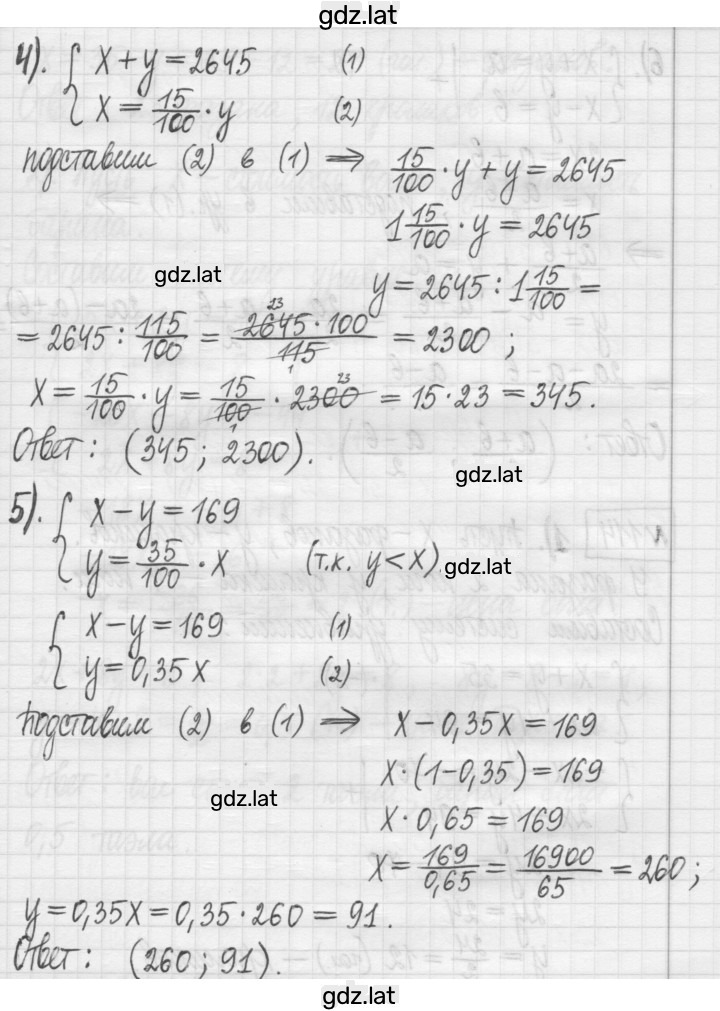 gdz.lat
4). { x + y = 2645 (1)
x = 15/100 · y (2)
подставим (2) в (1) ⇒ 15/100 · y + y = 2645
1 15/100 · y = 2645
gdz.lat
y = 2645 : 1 15/100 =
= 2645 : 115/100 = 2645 · 100 / 115 = 2300 ;
23
1
x = 15/100 · y = 15/100 · 2300 = 15 · 23 = 345.
23
1
Ответ: (345 ; 2300).
gdz.lat
5). { x − y = 169
y = 35/100 · x (т.к. y < x).
gdz.lat
{ x − y = 169 (1)
y = 0,35x (2)
подставим (2) в (1) ⇒ x − 0,35x = 169
x · (1−0,35) = 169
gdz.lat
x · 0,65 = 169
x = 169/0,65 = 16900/65 = 260 ;
y = 0,35x = 0,35 · 260 = 91.
Ответ: (260 ; 91).
gdz.lat